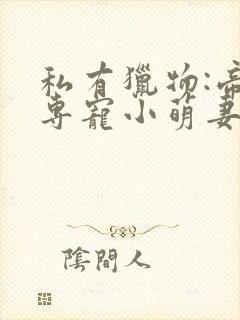 私有獵物:帝
專寵小萌妻
陰間人